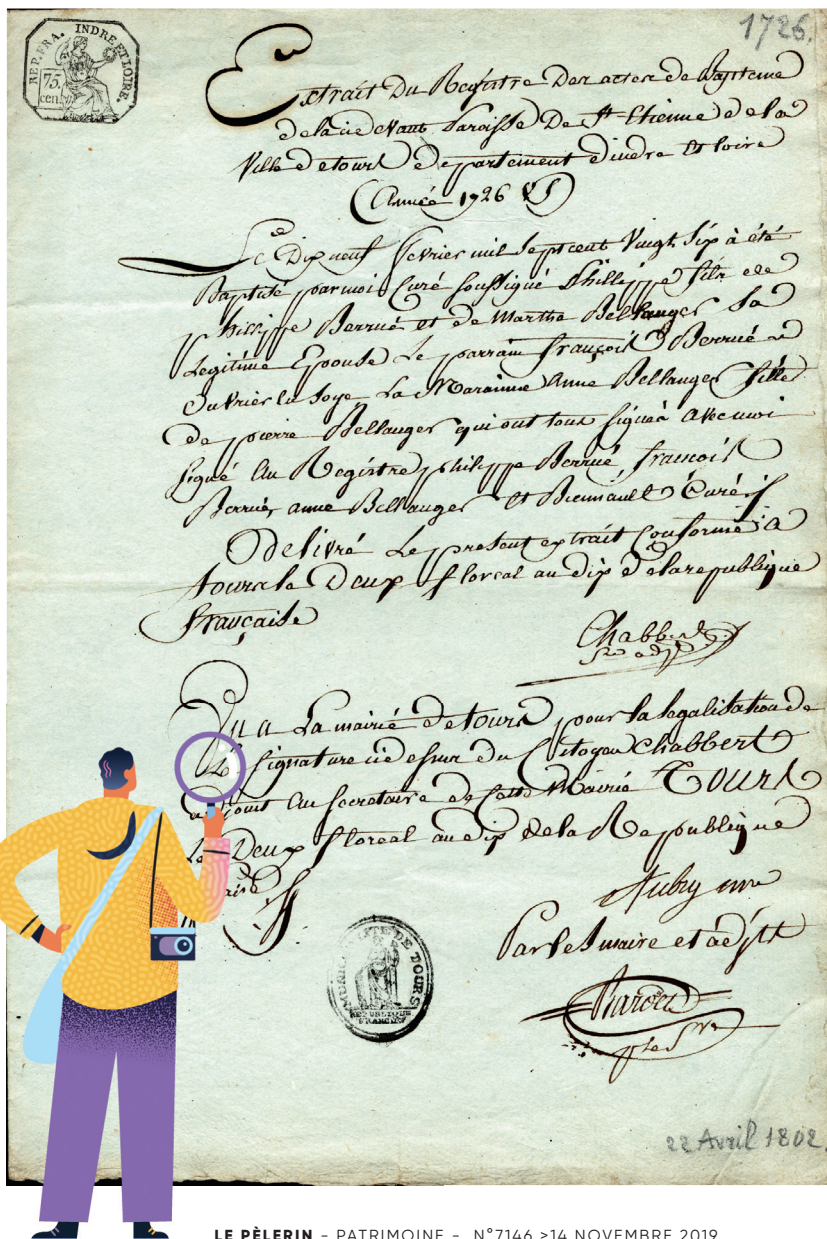 REP. FRA. INDRE ET LOIRE.
75.
cent
1726.
Extrait Du Registre Des actes de Bapteme
de la ci devant Paroisse De St Etienne de la
Ville de tours departement d'indre Et Loire
(Année 1726)
Le Dix neuf fevrier mil sept cent Vingt Six à été
Baptisé par moi Curé soussigné Phillippe fils de
phillippe Berrué et de Marthe Bellanger Sa
Legitime Epouse Le parrain françois Berrué
ouvrier en soye La Maraine Anne Bellanger fille
de pierre Bellanger qui ont tous signés avec moi
signé au Registre philippe Berrué, francois
Berrué anne Bellanger Et Curé
Délivré Le present extrait conforme a
tours le Deux floreal an dix de la republique
française
Chabbert
Vu a La mairie de tours pour la legalisation de
signature ci dessus du Citoyen Chabbert
adjoint au Secretaire de cette Mairie Tours
Le Deux floreal an dix de la Republique
Aubry
Par les maire et adjts
MUNICIPALITÉ DE TOURS
REPUBLIQUE
FRANÇAISE
22 Avril 1802.
LE PÈLERIN - PATRIMOINE - N°7146 >14 NOVEMBRE 2019